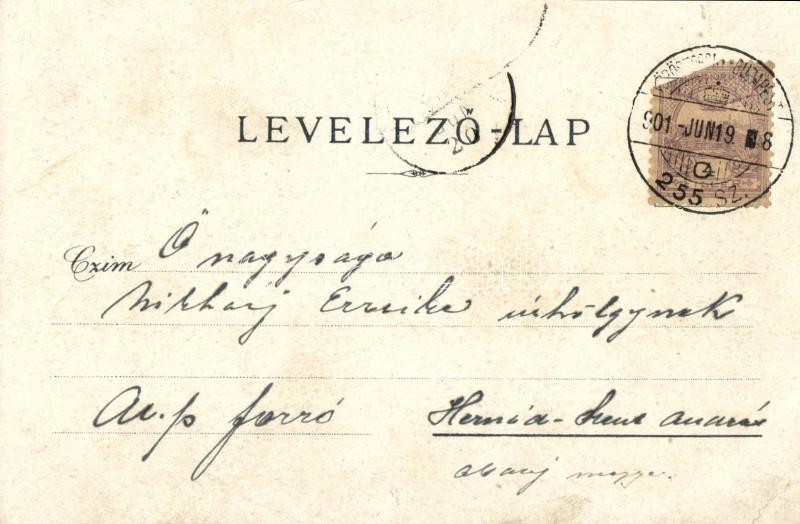 LEVELEZŐ-LAP
BUDAPEST
901 - JUN 19 8
255 SZ.
Czim Ő nagysága
úrhölgynek
u.p forró Hernád-Szent András
Abauj megye.